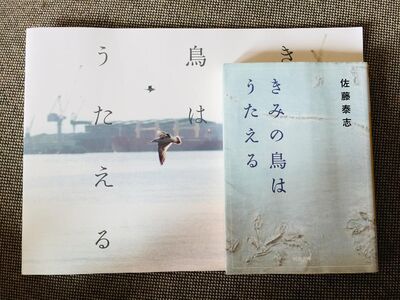 き
鳥は
うたえる
佐藤泰志
きみの鳥は
うたえる